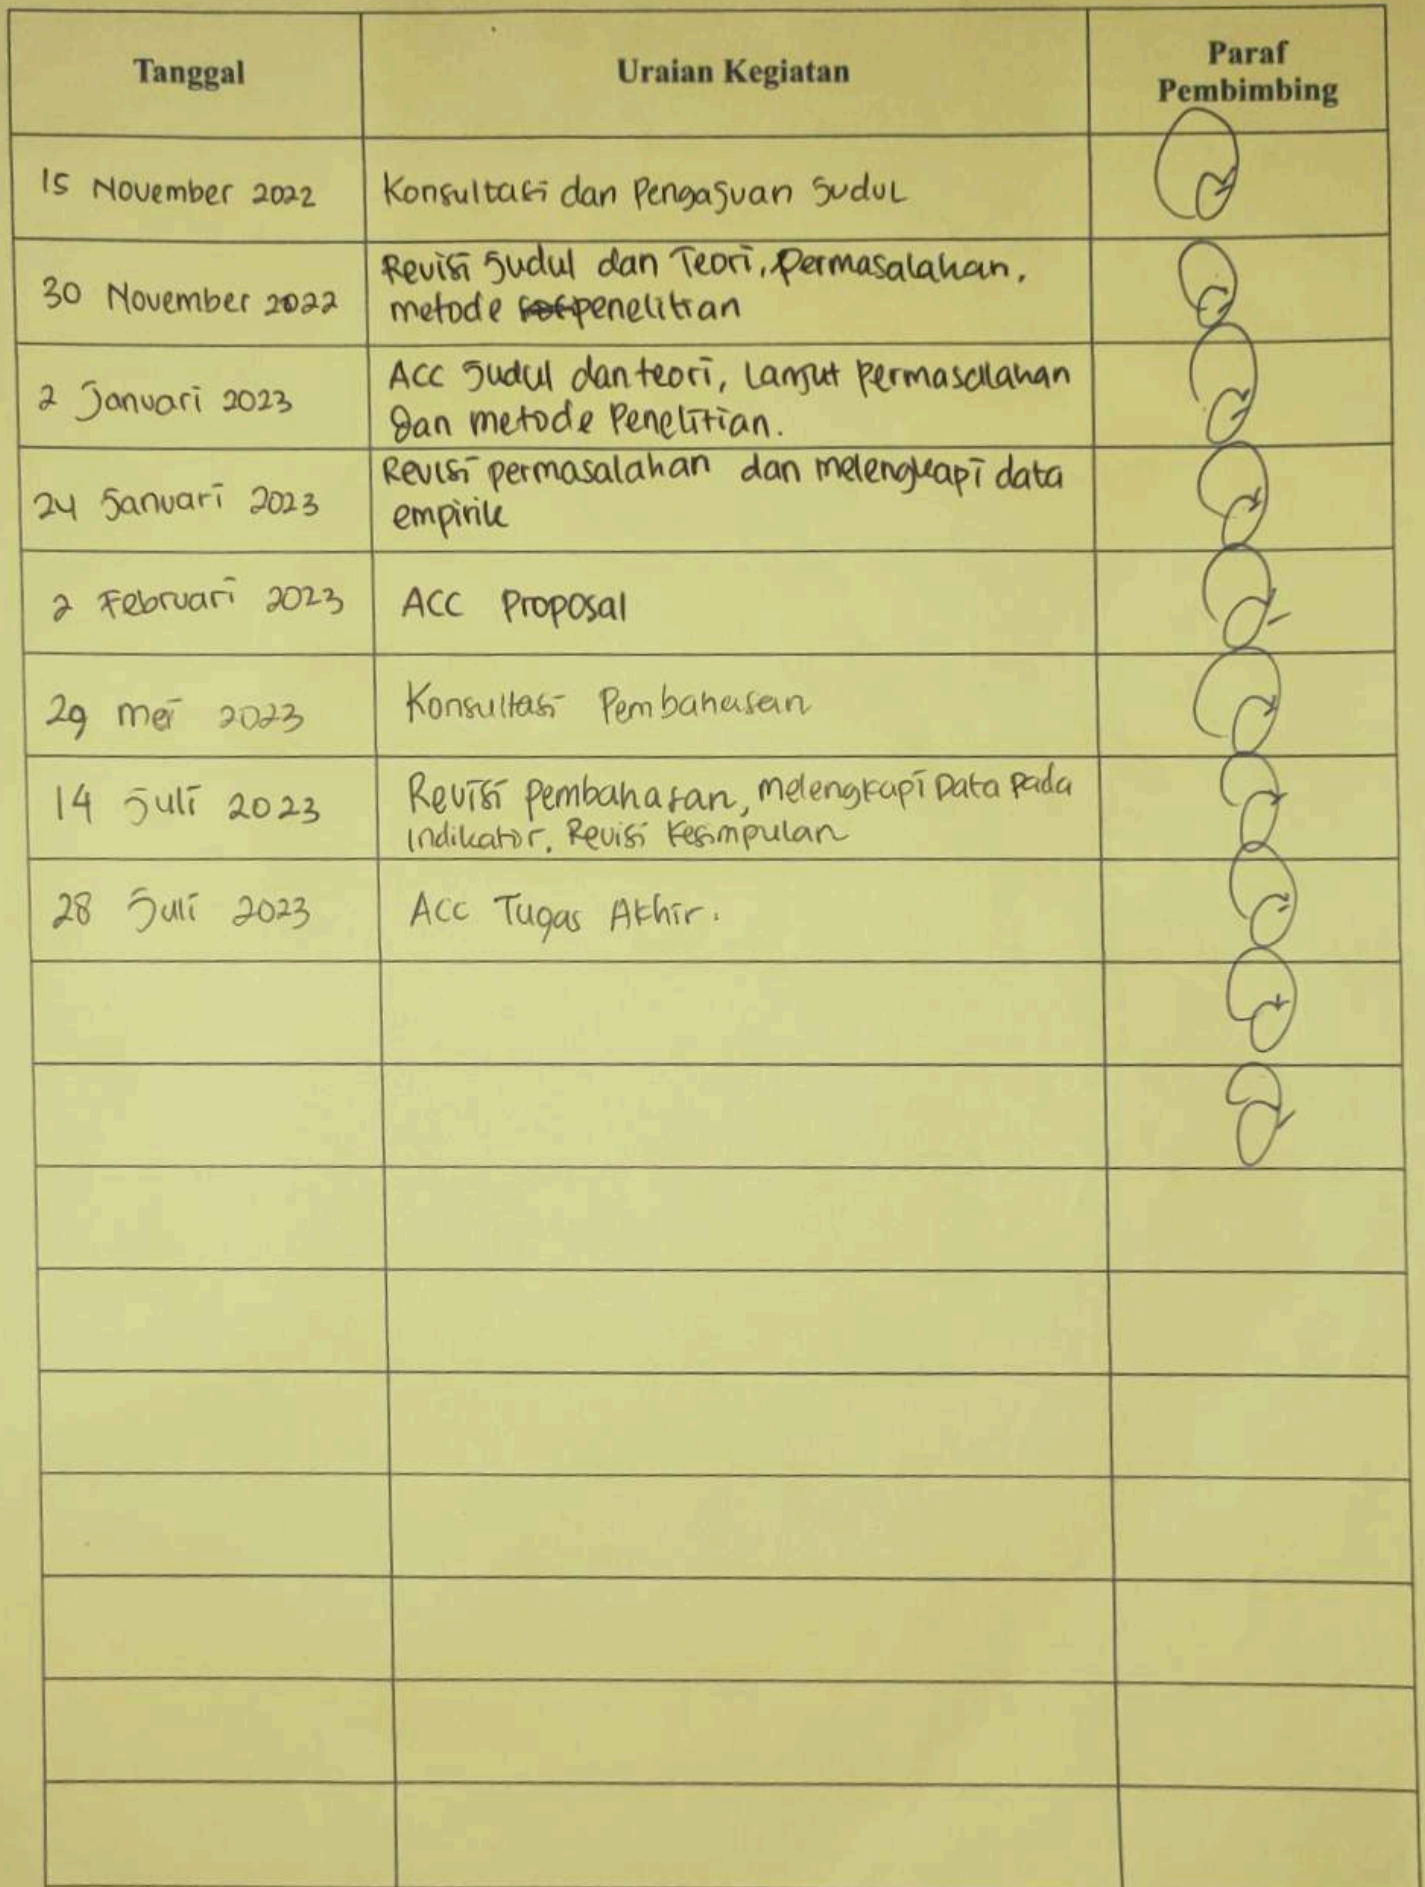 Tanggal
Uraian Kegiatan
Paraf
Pembimbing
15 November 2022
Konsultasi dan Pengajuan Judul
30 November 2022
Revisi Judul dan Teori, Permasalahan,
metode penelitian
2 Januari 2023
ACC Judul dan teori, Lanjut Permasalahan
dan metode Penelitian.
24 Januari 2023
Revisi permasalahan dan melengkapi data
empirik
2 Februari 2023
ACC Proposal
29 mei 2023
Konsultasi Pembahasan
14 Juli 2023
Revisi Pembahasan, melengkapi Data Pada
Indikator, Revisi Kesimpulan
28 Juli 2023
ACC Tugas Akhir.